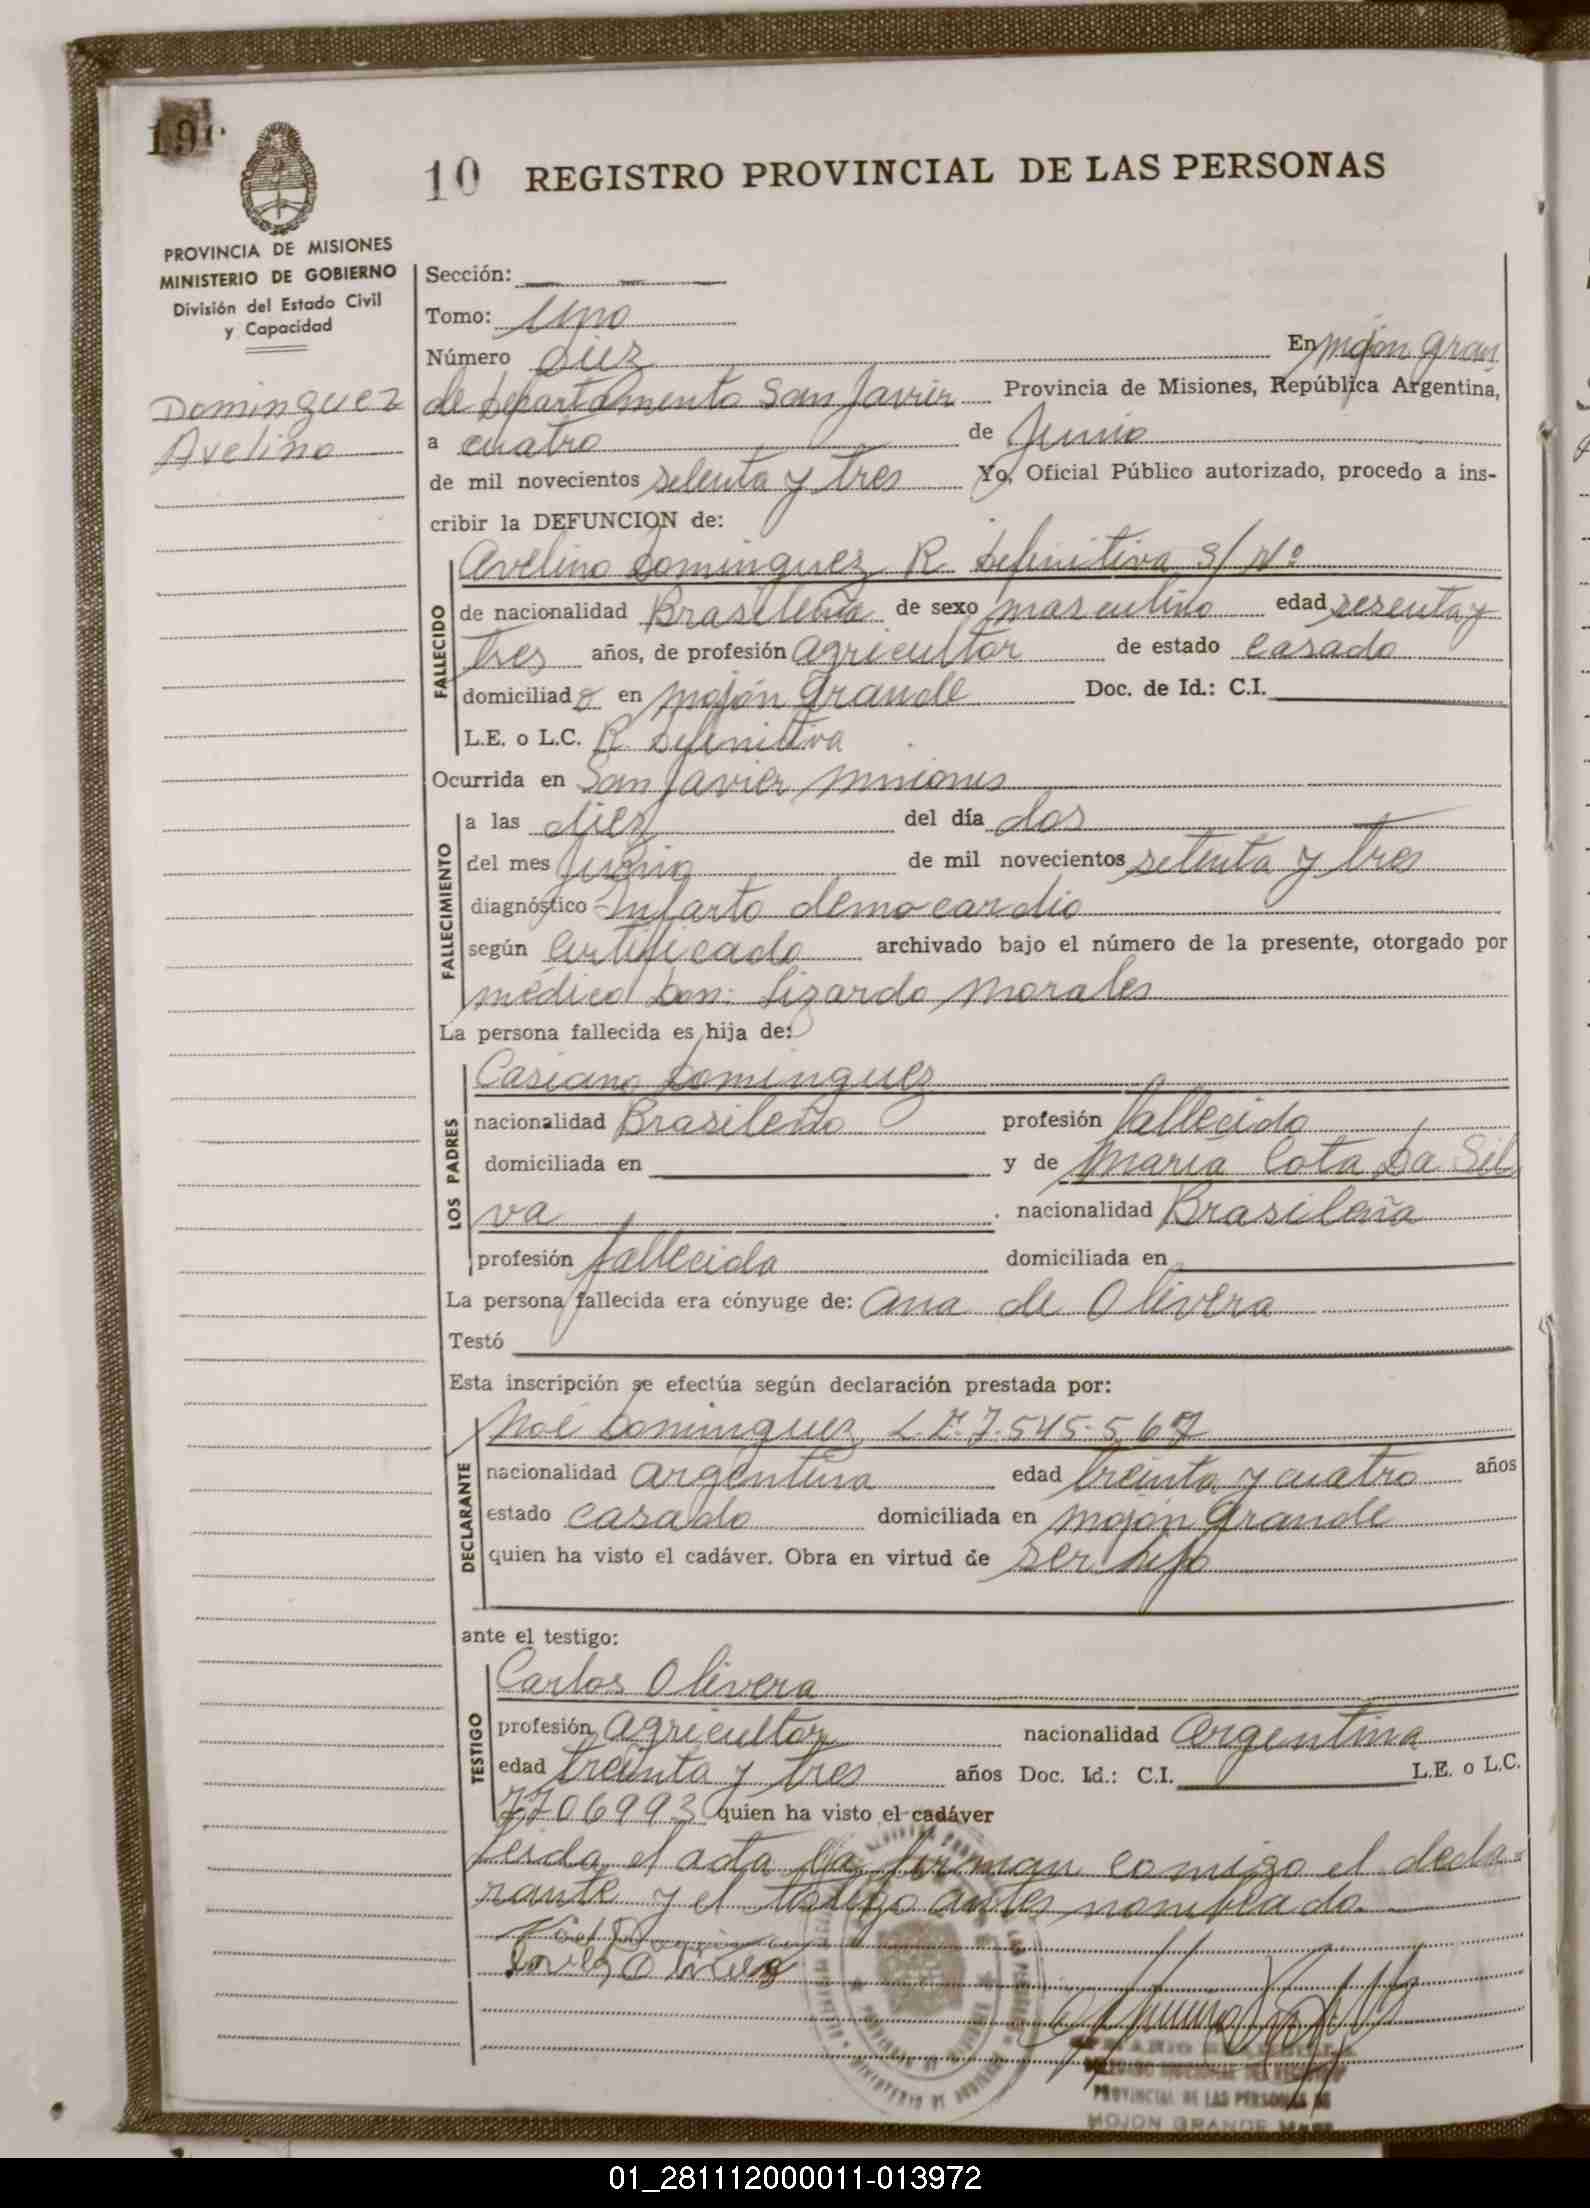 19
10 REGISTRO PROVINCIAL DE LAS PERSONAS
PROVINCIA DE MISIONES
MINISTERIO DE GOBIERNO
División del Estado Civil
y Capacidad
Dominguez
Avelino
Sección:
Tomo: Uno
Número diez En mojón gran
de departamento San Javier Provincia de Misiones, República Argentina,
a cuatro de Junio
de mil novecientos setenta y tres Yo, Oficial Público autorizado, procedo a ins-
cribir la DEFUNCION de:
FALLECIDO
Avelino Dominguez R. Definitiva S/Nº
de nacionalidad Brasileña de sexo masculino edad sesenta y
tres años, de profesión agricultor de estado casado
domiciliado en mojón grande Doc. de Id.: C.I.
L.E. o L.C. R. Definitiva
Ocurrida en San Javier Misiones
FALLECIMIENTO
a las diez del día dos
del mes Junio de mil novecientos setenta y tres
diagnóstico Infarto democardio
según certificado archivado bajo el número de la presente, otorgado por
médico Don: Lizardo Morales
La persona fallecida es hija de:
LOS PADRES
Casiano Dominguez
nacionalidad Brasileño profesión fallecido
domiciliada en y de María Cota Da Sil
va nacionalidad Brasileña
profesión fallecida domiciliada en
La persona fallecida era cónyuge de: Ana de Olivera
Testó
Esta inscripción se efectúa según declaración prestada por:
DECLARANTE
Noé Dominguez L.E. 7.545.567
nacionalidad argentina edad treinta y cuatro años
estado casado domiciliada en mojón grande
quien ha visto el cadáver. Obra en virtud de ser hijo
ante el testigo:
TESTIGO
Carlos Olivera
profesión agricultor nacionalidad argentina
edad treinta y tres años Doc. Id.: C.I. L.E. o L.C.
7706993 quien ha visto el cadáver
Leida el acta la firman comigo el decla-
rante y el testigo antes nombrado.
PROVINCIAL DE LAS PERSONAS
MOJON GRANDE
01_281112000011-013972